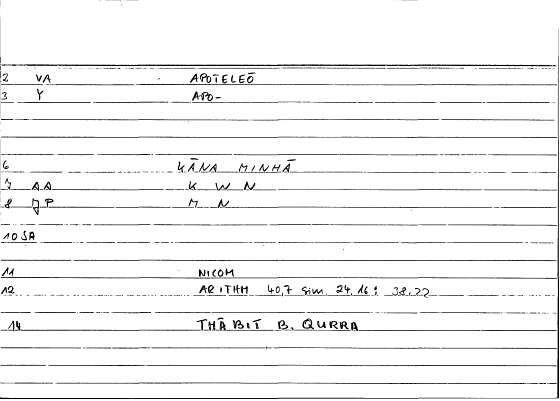 2 VA APOTELEŌ
3 Y APO-
6 KĀNA MINHĀ
7 AA K W N
8 JP M N
10 SA
11 NICOM
12 ARITHM 40,7 sim. 24.16; 38.22
14 THĀBIT B. QURRA